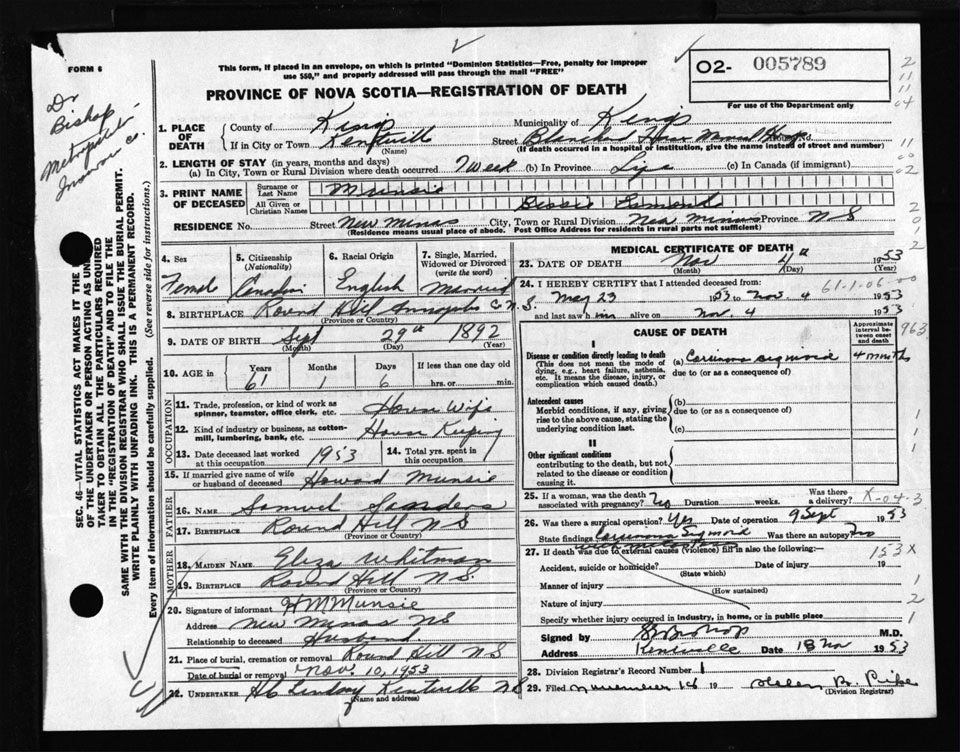 FORM 6
This form, if placed in an envelope, on which is printed "Dominion Statistics—Free, penalty for improper
use $50," and properly addressed will pass through the mail "FREE"
PROVINCE OF NOVA SCOTIA—REGISTRATION OF DEATH
O2- 005789
For use of the Department only
Dr
Bishop
Metropolitan
SEC. 46—VITAL STATISTICS ACT MAKES IT THE
OF THE UNDERTAKER OR PERSON ACTING AS UNDER
TAKER TO OBTAIN ALL THE PARTICULARS REQUIRED
IN THE "REGISTRATION OF DEATH" AND TO FILE THE
SAME WITH THE DIVISION REGISTRAR WHO SHALL ISSUE THE BURIAL PERMIT.
WRITE PLAINLY WITH UNFADING INK. THIS IS A PERMANENT RECORD.
Every item of information should be carefully supplied. (See reverse side for instructions.)
1. PLACE OF DEATH
County of Kings Municipality of Kings
If in City or Town Kentville Street Blanch
(Name) (If death occurred in a hospital or institution, give the name instead of street and number)
2. LENGTH OF STAY (in years, months and days)
(a) In City, Town or Rural Division where death occurred 1 week (b) In Province Life (c) In Canada (if immigrant)
3. PRINT NAME OF DECEASED
Surname or Last Name Munsie
All Given or Christian Names Bessie
RESIDENCE No. Street New Minas City, Town or Rural Division New Minas Province N S
(Residence means usual place of abode. Post Office Address for residents in rural parts not sufficient)
4. Sex 5. Citizenship (Nationality) 6. Racial Origin 7. Single, Married, Widowed or Divorced (write the word)
Female Canadian English Married
8. BIRTHPLACE Round Hill Annapolis Co N.S.
(Province or Country)
9. DATE OF BIRTH Sept 29th 1892
(Month) (Day) (Year)
10. AGE in Years Months Days If less than one day old
61 1 6 hrs. or min.
OCCUPATION
11. Trade, profession, or kind of work as spinner, teamster, office clerk, etc. House Wife
12. Kind of industry or business, as cotton-mill, lumbering, bank, etc. House Keeping
13. Date deceased last worked at this occupation 1953 14. Total yrs. spent in this occupation
15. If married give name of wife or husband of deceased Howard Munsie
FATHER
16. NAME Samuel Saunders
17. BIRTHPLACE Round Hill N S
(Province or Country)
MOTHER
18. MAIDEN NAME Eliza Whitman
19. BIRTHPLACE Round Hill N S.
(Province or Country)
20. Signature of informant H M Munsie
Address New Minas NS
Relationship to deceased Husband
21. Place of burial, cremation or removal Round Hill N S
Date of burial or removal Nov. 10, 1953
22. UNDERTAKER Lindsay Kentville N S
(Name and address)
MEDICAL CERTIFICATE OF DEATH
23. DATE OF DEATH Nov 4th 1953
(Month) (Day) (Year)
24. I HEREBY CERTIFY that I attended deceased from:
May 23 1953 to Nov. 4 1953
and last saw him alive on Nov. 4 1953
61-1-06
CAUSE OF DEATH
Approximate interval between onset and death
I
Disease or condition directly leading to death
(This does not mean the mode of dying, e.g., heart failure, asthenia, etc. It means the disease, injury, or complication which caused death.)
(a) Carcinoma sigmoid 4 months
due to (or as a consequence of)
Antecedent causes
Morbid conditions, if any, giving rise to the above cause, stating the underlying condition last.
(b)
due to (or as a consequence of)
(c)
II
Other significant conditions
contributing to the death, but not related to the disease or condition causing it.
25. If a woman, was the death associated with pregnancy? No Duration weeks. Was there a delivery? X-04-3
26. Was there surgical operation? Yes Date of operation 9 Sept 1953
State findings Carcinoma Sigmoid Was there an autopsy? No
27. If death was due to external causes (violence) fill in also the following:—
153X
Accident, suicide or homicide? Date of injury 19
(State which)
Manner of injury
(How sustained)
Nature of injury
Specify whether injury occurred in industry, in home, or in public place
Signed by Bishop M.D.
Address Kentville Date 18 Nov 1953
28. Division Registrar's Record Number 1
29. Filed November 19 Helen B.
(Division Registrar)